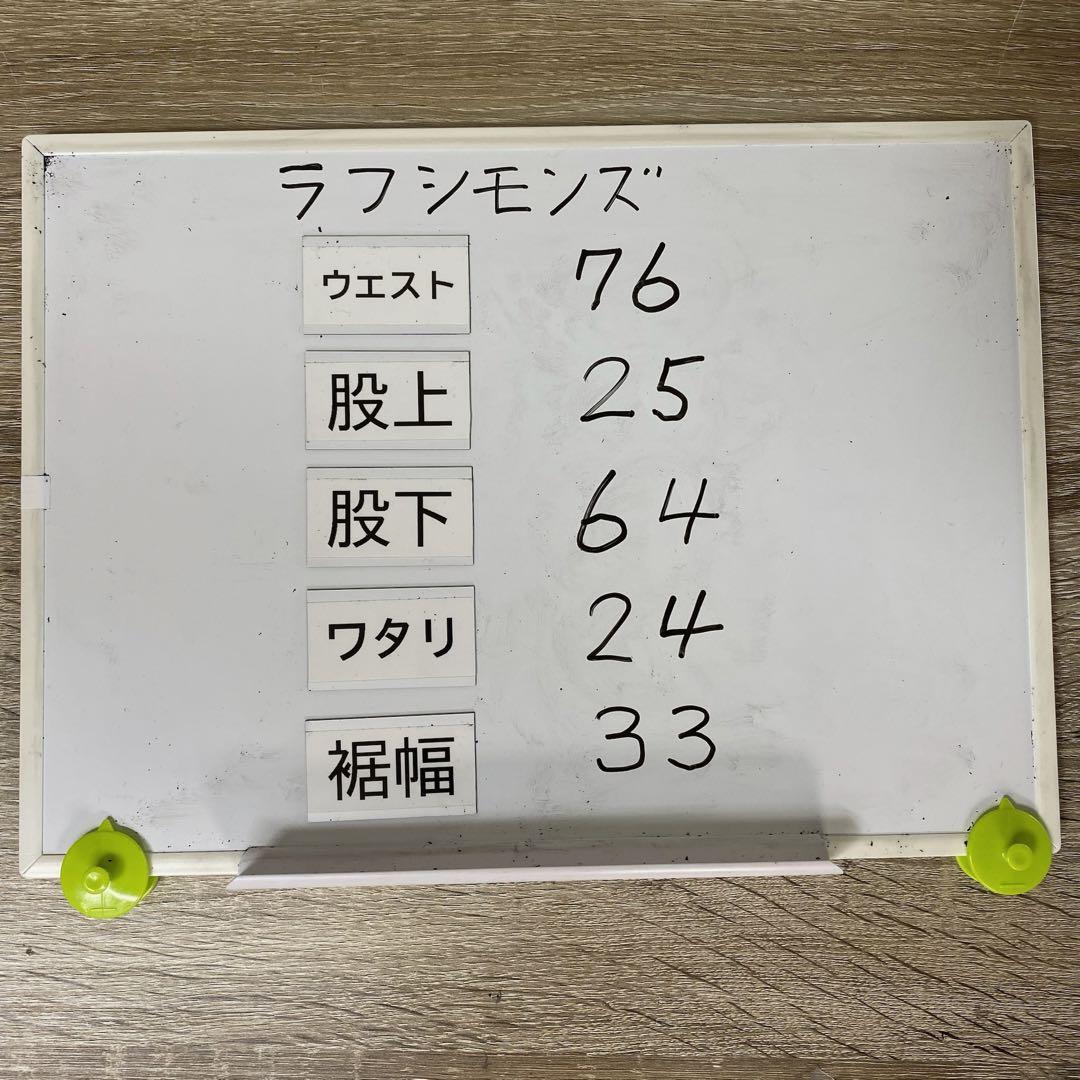 ラフシモンズ
ウエスト 76
股上 25
股下 64
ワタリ 24
裾幅 33